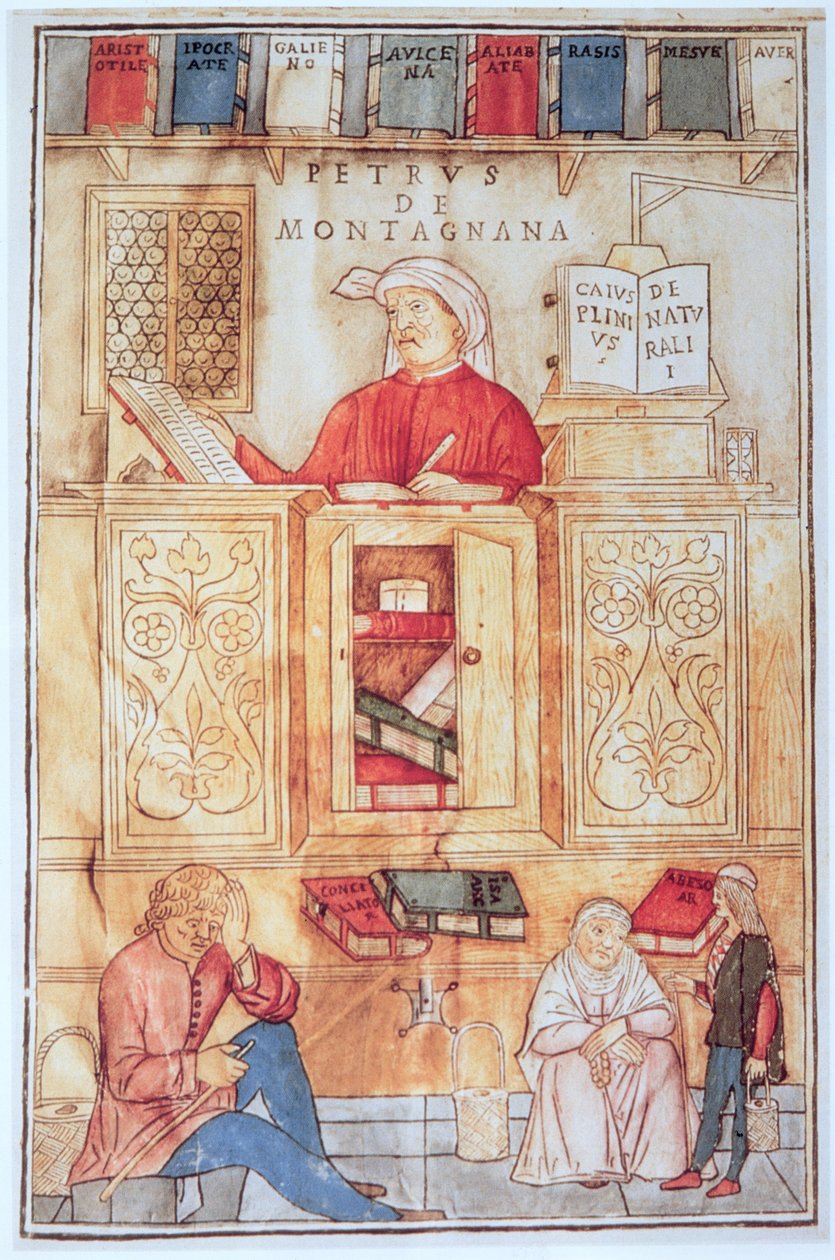 ARIST
OTILE
IPOCR
ATE
GALIE
NO
AVICE
NA
ALIAB
ATE
RASIS
MESVE
AVER
PETRVS
DE
MONTAGNANA
CAIVS
PLINI
VS
s
DE
NATV
RALI
I
CONCE
LIATO
R
ISA
AKC
ABESO
AR